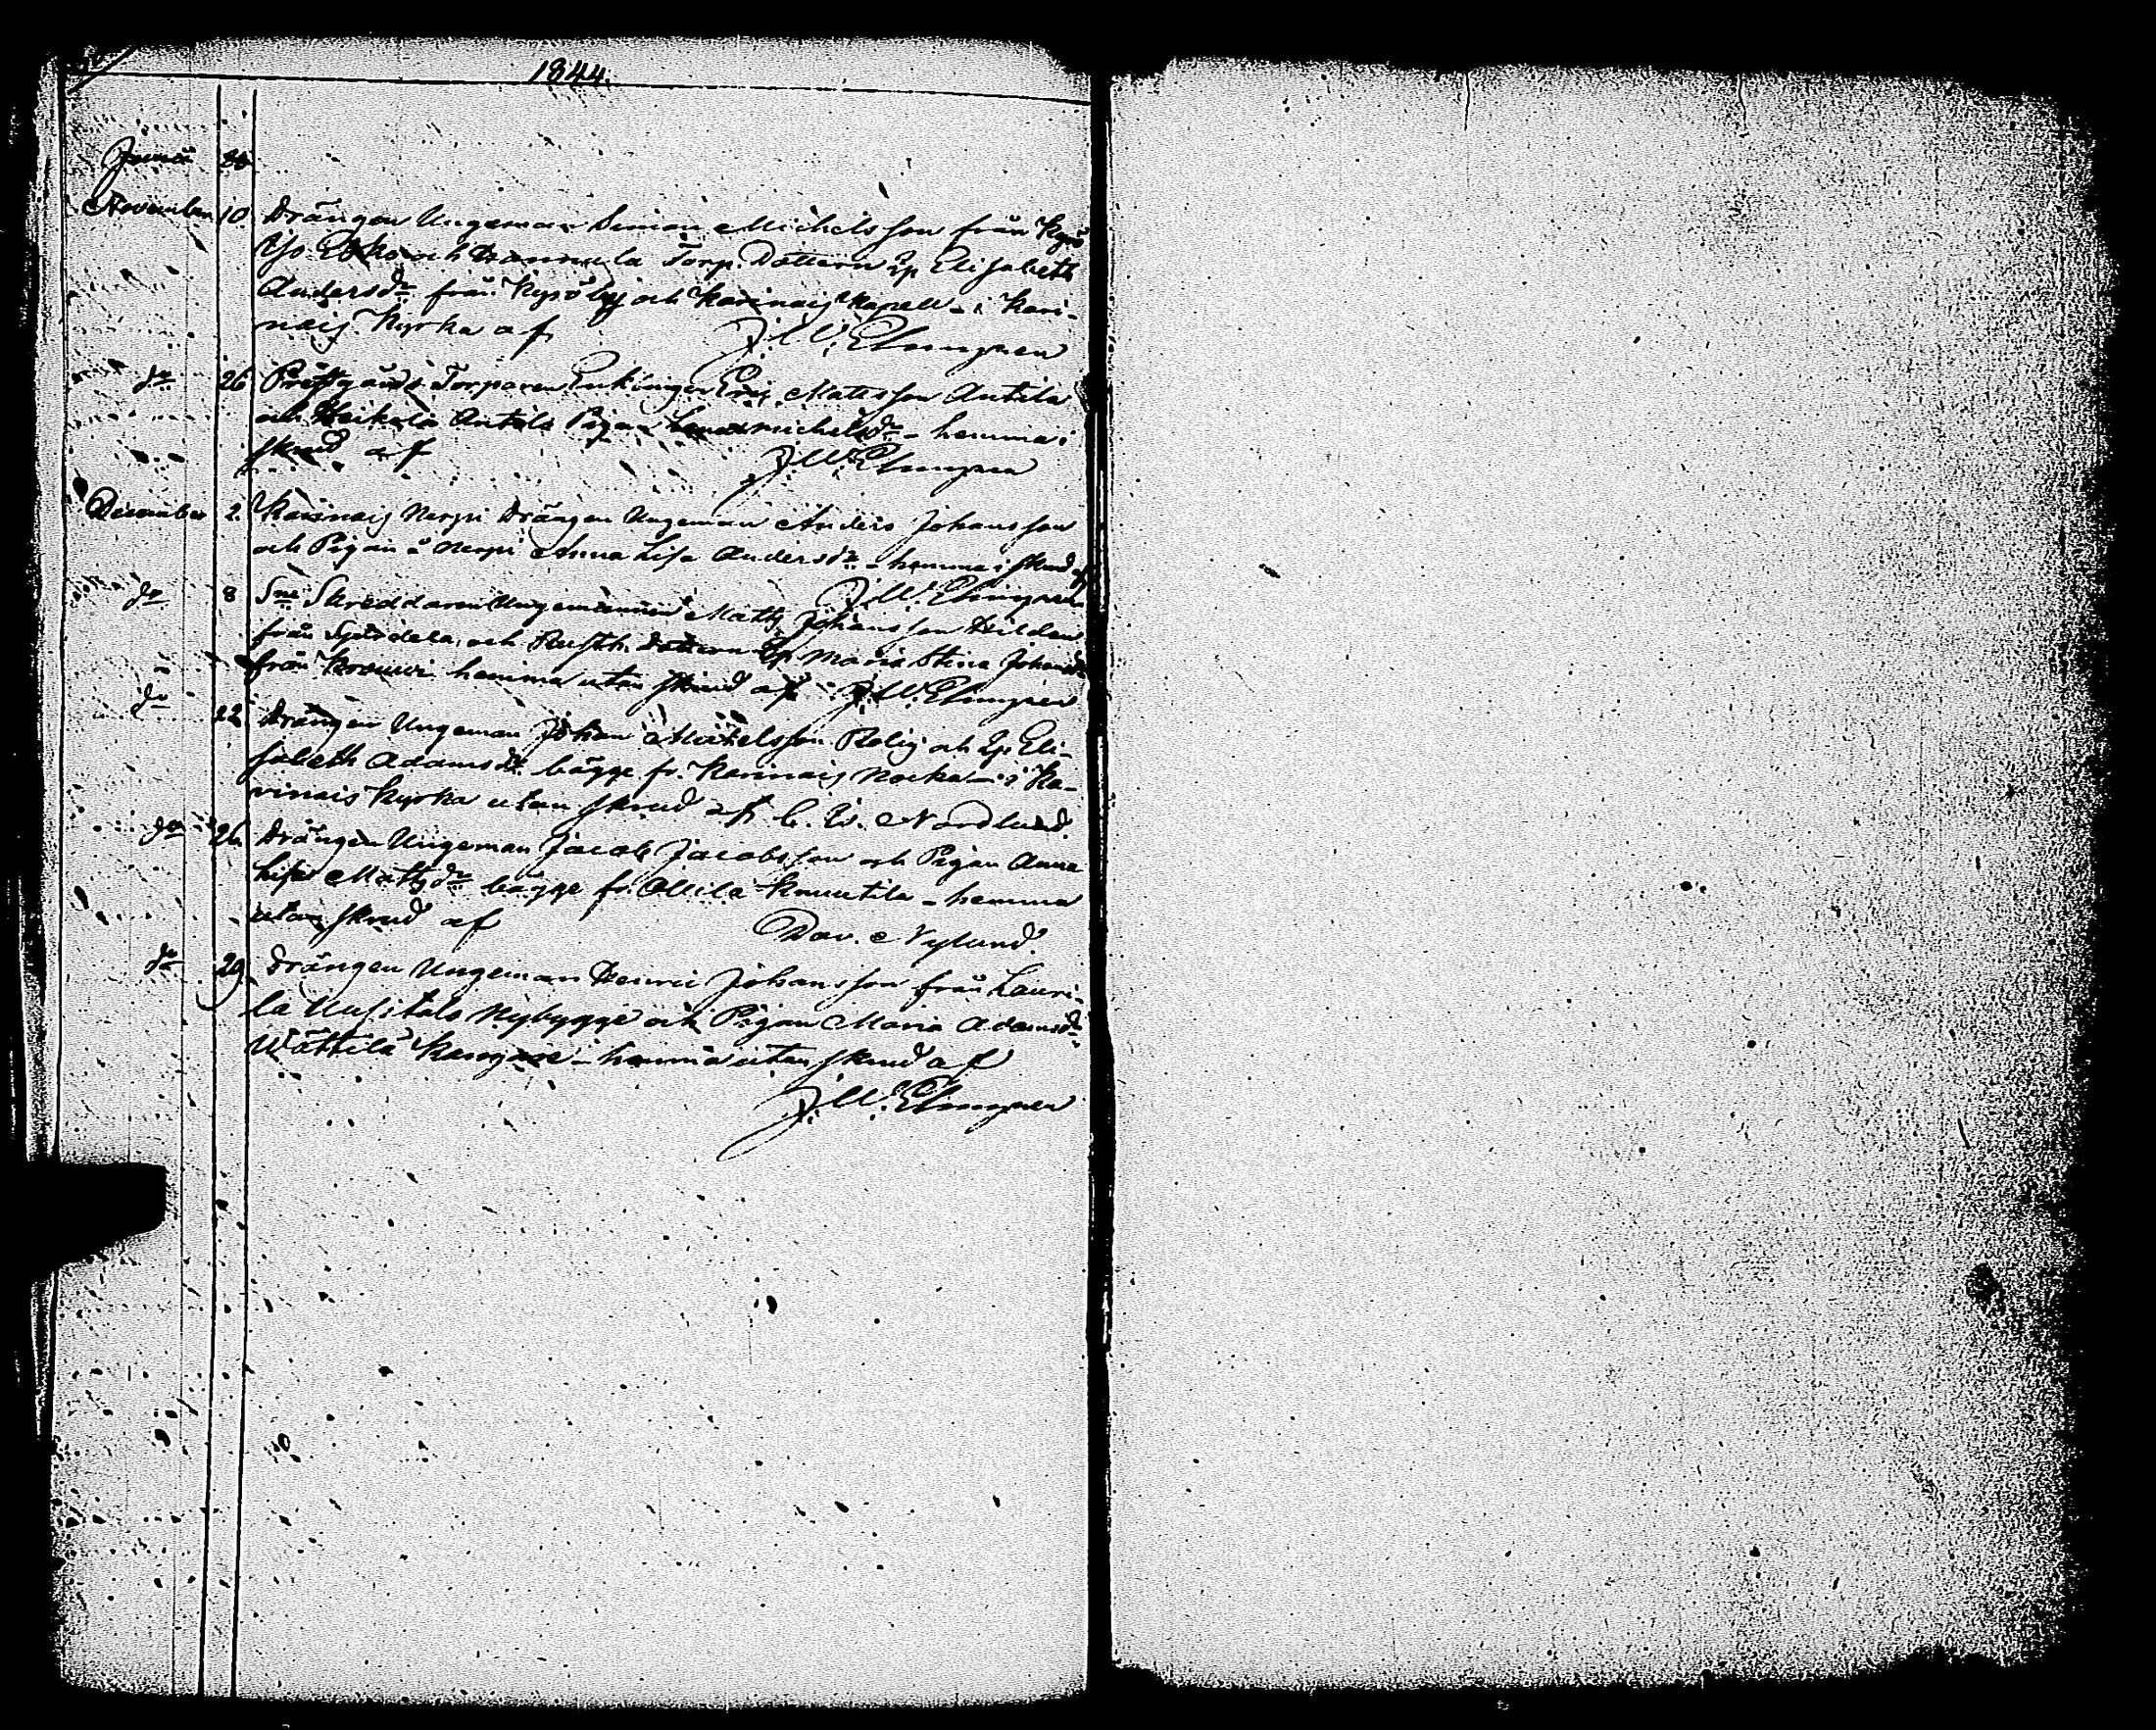 1844.
Junii 30
November 10 Drängen Ungeman Simon Michelsson från Kyrö
Iso Erko och Torp. Dottern Ip Elisabeth
Andersdr från Kyröby och Karinais Kapell - i Kari-
nais Kyrka af J. W. Elmgren
do 26 Prestgårds Torparen Enklingen Eric Mattsson Antila
och Heikola Antola Pigan Lena Michelsdr - hemma i
skrud af J. W. Elmgren
December 2 Karinais Nerpi Drängen Ungeman Anders Johansson
och Pigan å Nerpi Anna Lisa Andersdr - hemma i skrud af
J. W. Elmgren
do 8 Sne Skreddaren Ungemannen Matts Johansson Hilden
från och Rusth. dottern Ip Maria Stina Johansdr
från hemma utan skrud af J. W. Elmgren
do 22 Drängen Ungeman Johan Michelsson Rolig och Ip Eli-
sabeth Adamsdr bägge fr. Karinais - i Ka-
rinais Kyrka utan skrud af C. W. Nordlund.
do 26 Drängen Ungeman Jacob Jacobsson och Pigan Anna
Lisa Mattsdr bägge fr. Ollila Knuutila - hemma
utan skrud af Dav. Nylund.
do 29 Drängen Ungeman Henric Johansson från Lauri-
la Uusitalo Nybygge och Pigan Maria Adamsdr
Wättilä Kangare - hemma utan skrud af
J. W. Elmgren